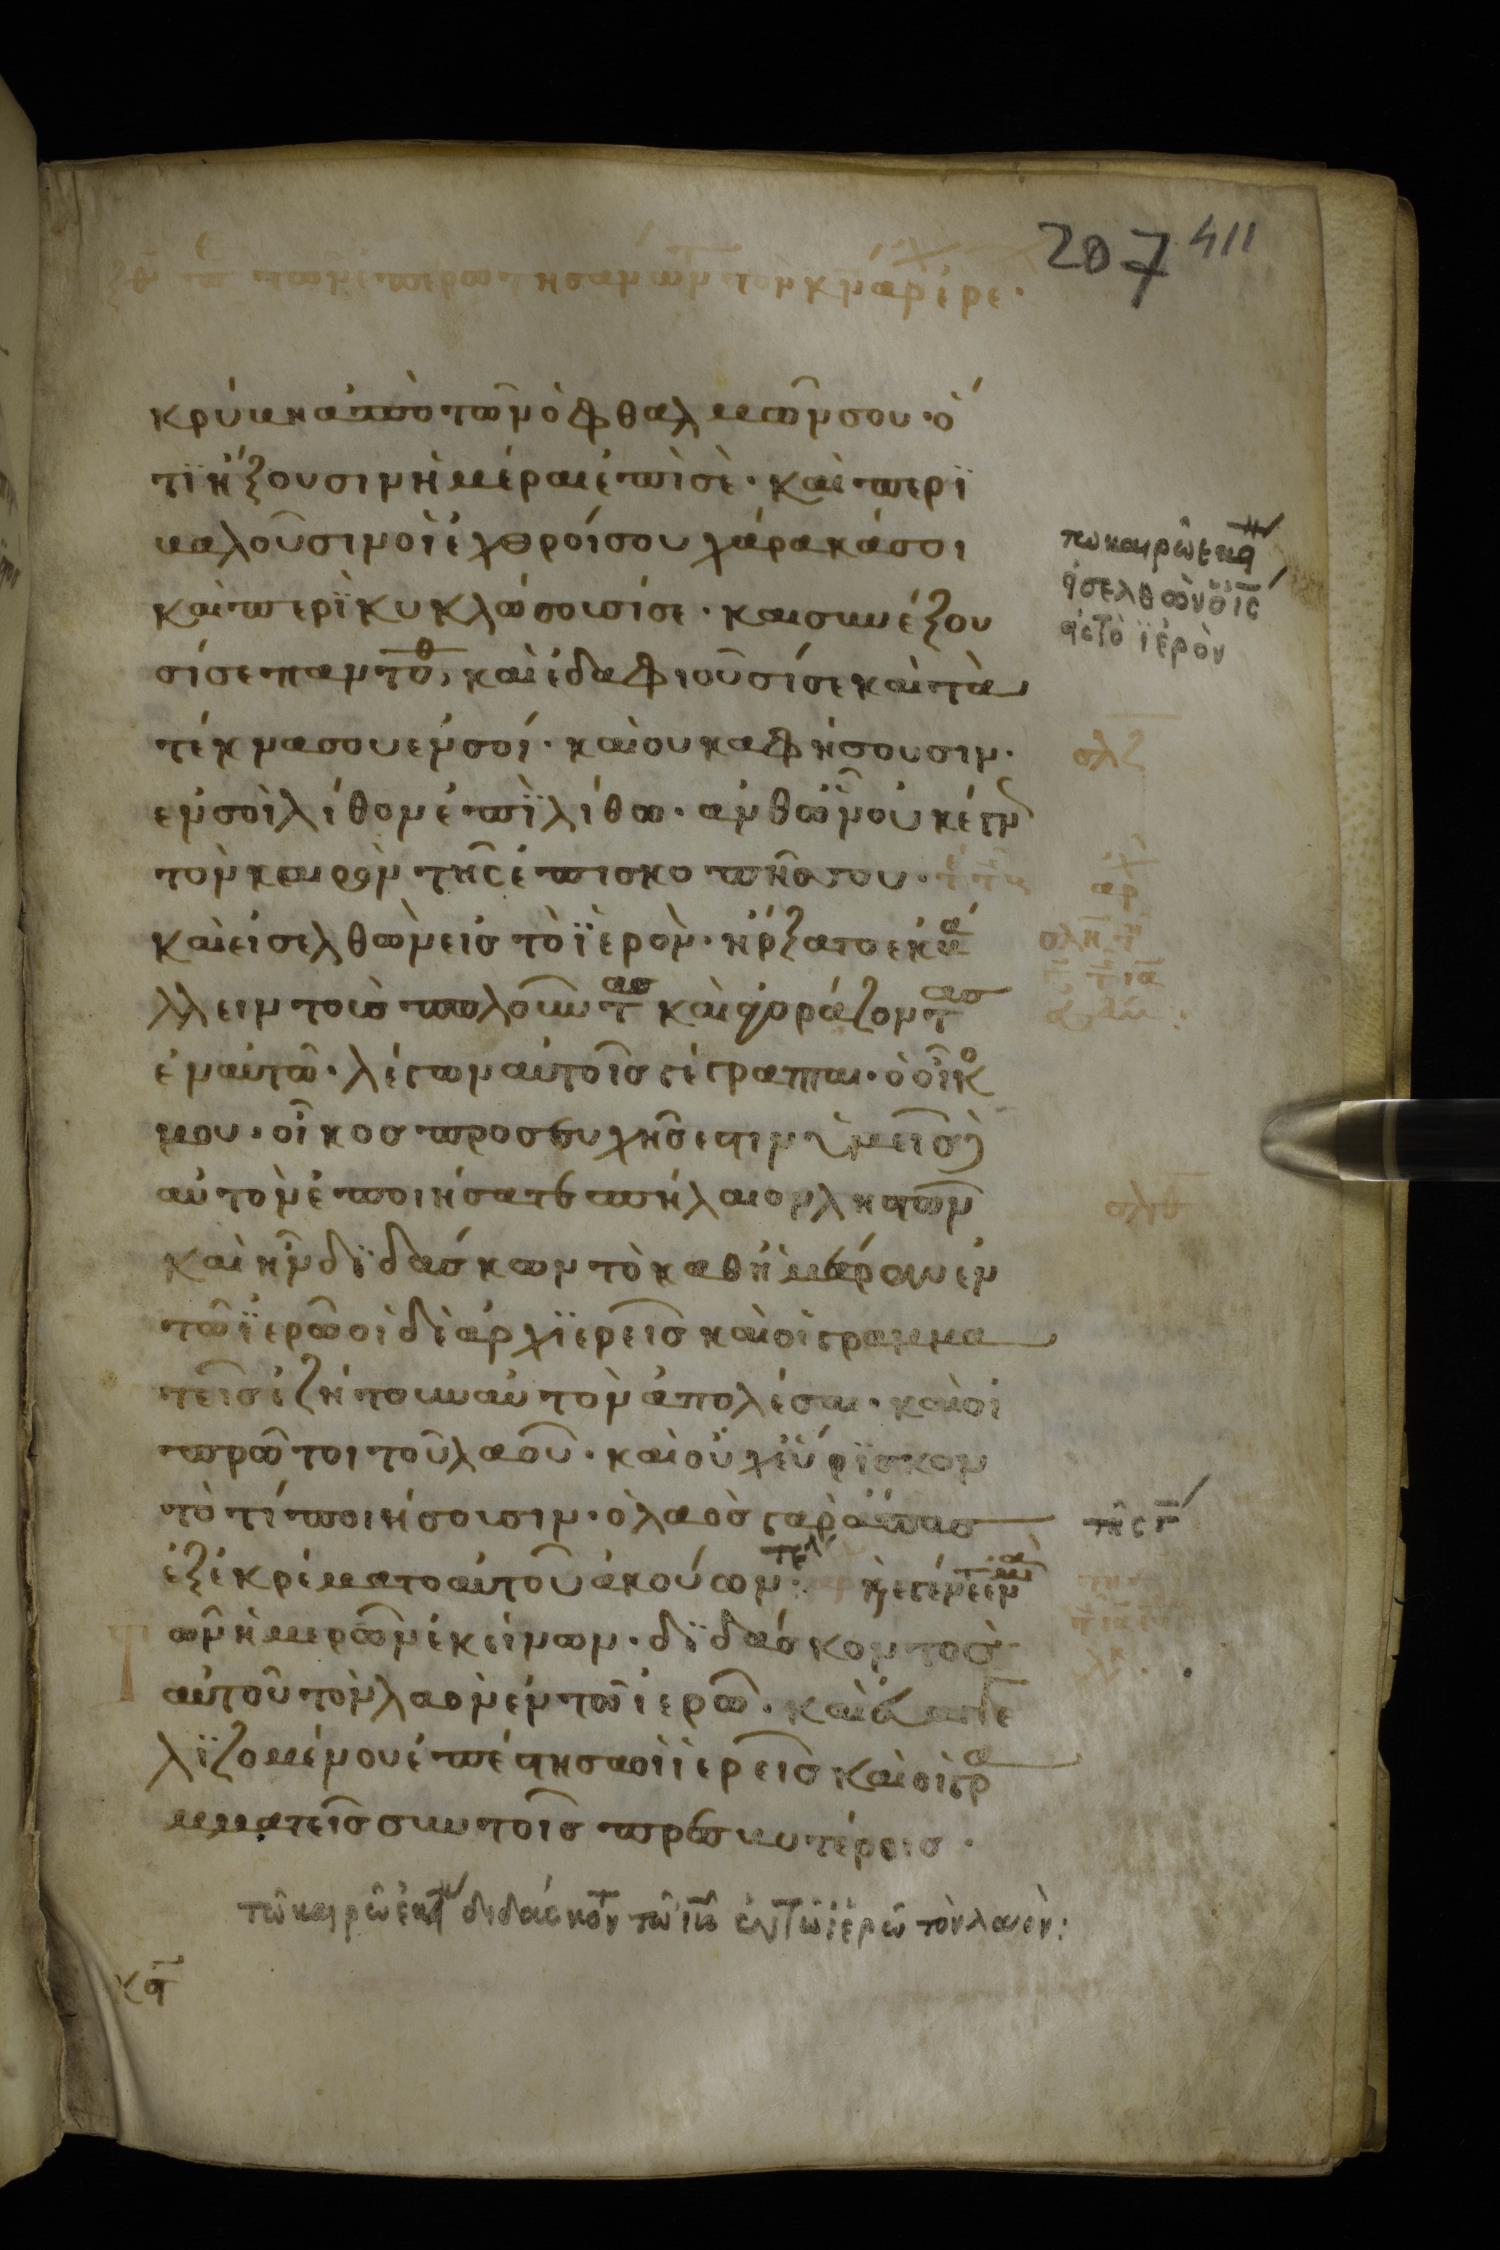 207 411
τῶν ἐπερωτησάντων τὸν κν ἀρχιερε.
κρύβη ἀπὸ τῶν ὀφθαλμῶν σου · ὅ
τϊ ἥξουσιν ἡμέραι ἐπὶ σὲ · καὶ περϊ
βαλοῦσιν οἱ ἐχθροί σου χάρακά σοι
καὶ περϊκυκλώσουσί σε · και συνέξου
σί σε παντοθ, καὶ ἐδαφιοῦσί σε καὶ τὰ
τέκνα σου εν σοί · και ουκ αφήσουσιν ·
εν σοὶ λίθον ἐπὶ λίθω · ανθ ὧν οὐκ έγν
τον καιρὸν τῆς ἐπισκοπῆς σου ·
καὶ εἰσελθὼν εισ τὸ ϊερὸν · ἤρξατο εκβα
λλειν τοὺσ πωλοῦντασ καὶ ἀγοράζοντασ
ἐν αὐτῶ · λέγων αὐτοῖσ γέγραπται · ὁ οἶκο
μου · οἶκοσ προσευχῆσ εστιν ὑμεῖσ δὲ
αὐτὸν ἐποιήσατε σπήλαιον ληστῶν
καὶ ἦν δϊδάσκων τὸ καθ ἡμέραν ἐν
τῶ ϊερῶ οἱ δὲ ἀρχϊερεῖσ καὶ οἱ γραμμα
τεῖσ ἐζήτουν αὐτὸν ἀπολέσαι · καὶ οἱ
πρῶτοι τοῦ λαοῦ · καὶ οὐχ εὕρϊσκον
τὸ τί ποιήσουσιν · ὁ λαὸσ γὰρ ἅπασ
ἐξεκρέματο αὐτοῦ ἀκούων · κ ἐγένετο ἐν μια
ων ἡμερῶν ἐκείνων · δϊδάσκοντοσ
αὐτοῦ τὸν λαὸν ἐν τῶ ἱερῶ · καὶ εὐαγγε
λϊζομένου ἐπέστησαν οἱ ἱερεῖσ καὶ οἱ γρα
μματεῖσ σὺν τοῖσ πρεσβυτέροισ ·
τῶ καιρῶ ἐκει διδάσκοντ τῶ ιυ ἐν τῶ ϊερῶ τὸν λαὸν :
τω καιρῶ εκει
εἰσελθὼν ὁ ις
εἰς τὸ ϊερὸν
σλζ
σλη
σλθ